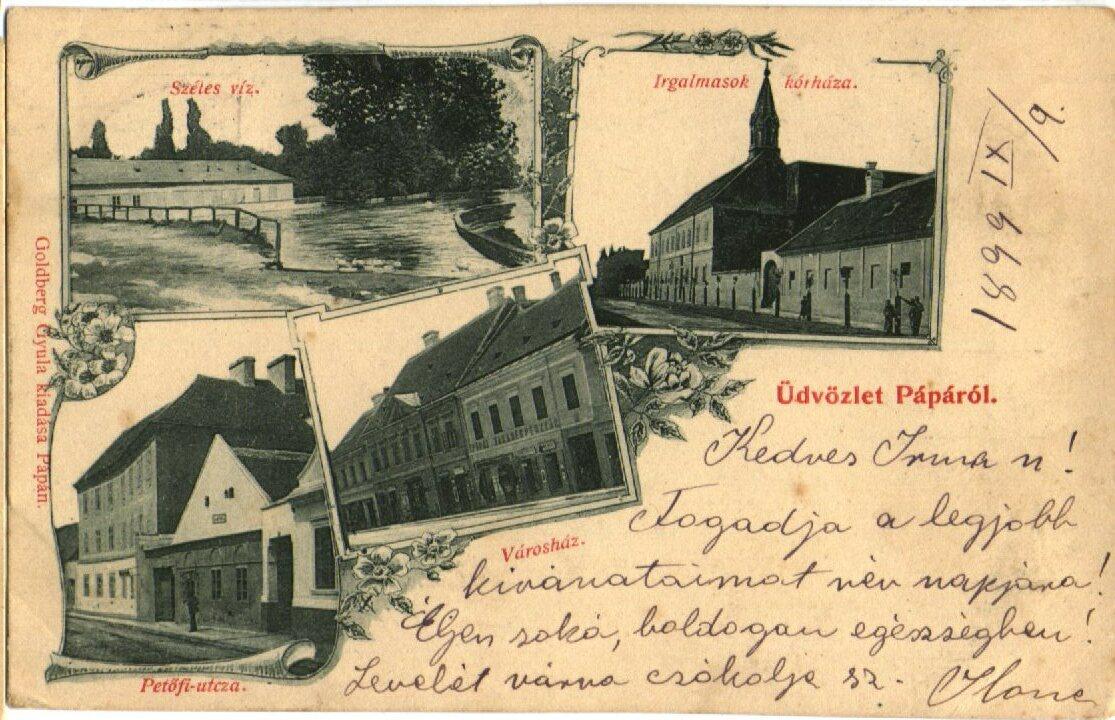 Széles víz.
Irgalmasok kórháza.
1899 IX/9.
Goldberg Gyula kiadása Pápán.
Üdvözlet Pápáról.
Kedves Irma n!
Fogadja a legjobb
kivánataimat név napjára!
Éljen soká, boldogan egészségben!
Levelét várva csókolja sz. Ilona
Városház.
Petőfi-utcza.